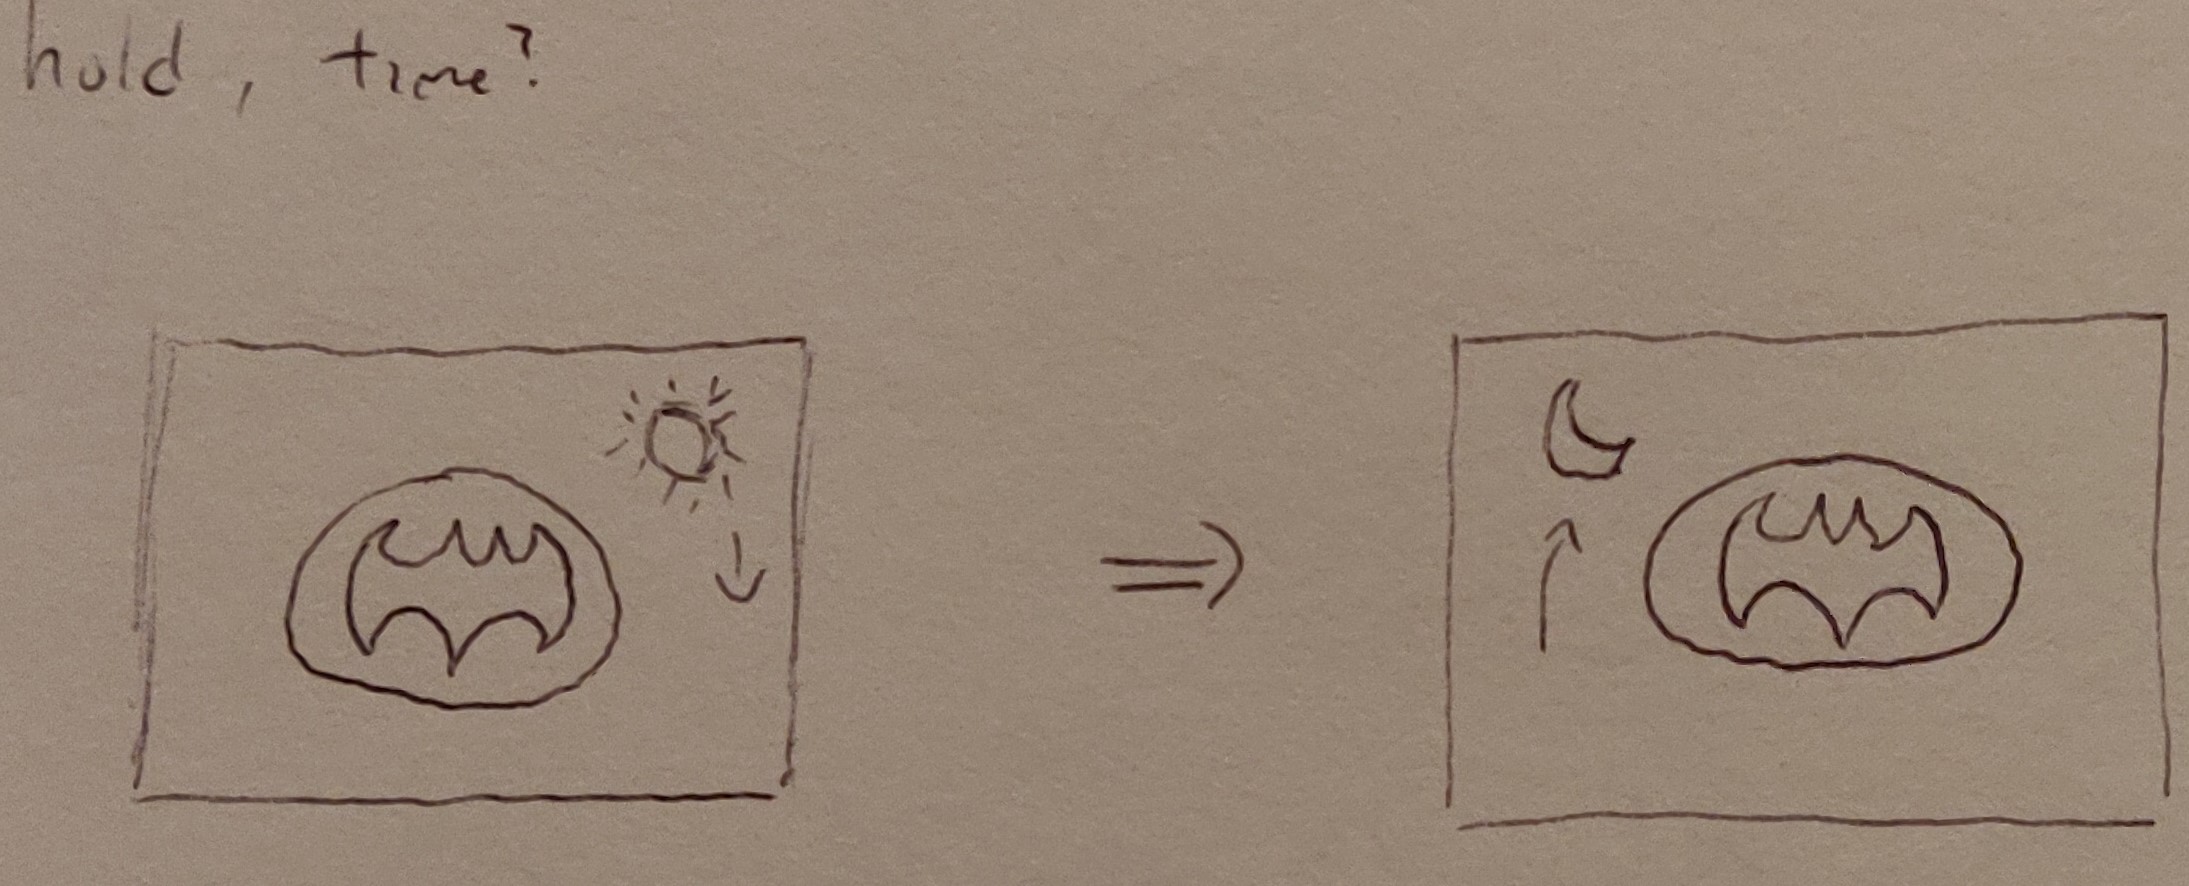 hold, time?